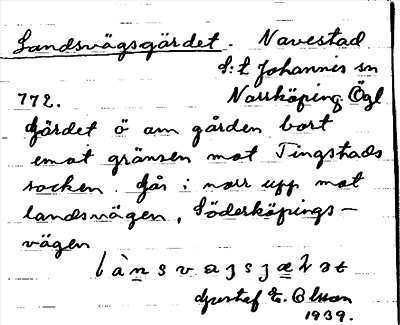 Landsvägsgärdet. Navestad
S:t Johannis sn
772. Norrköping Ögl
Gärdet ö om gården bort
emot gränsen mot Tingstads
socken. Går i norr upp mot
landsvägen, Söderköpings-
vägen
Gustaf E. Olsson
1939.